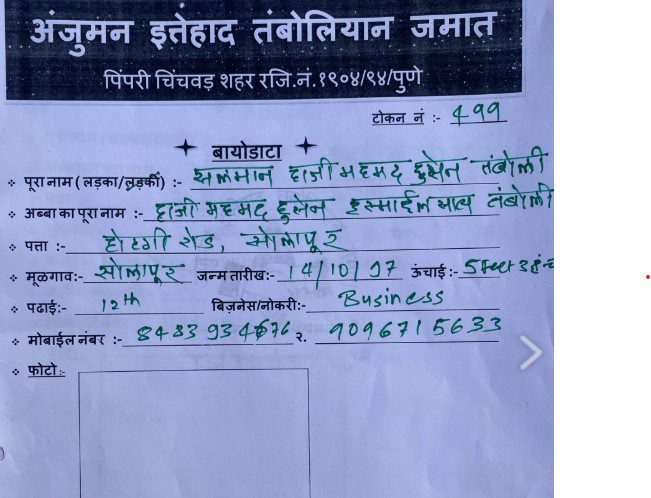 अंजुमन इत्तेहाद तंबोलियान जमात
पिंपरी चिंचवड़ शहर रजि.नं.१९०४/९४/पुणे
टोकन नं :- 499
बायोडाटा
पूरा नाम (लड़का/लड़की) :- सलमान हाजी महमद हुसेन तंबोली
अब्बा का पूरा नाम :- हाजी महमद हुसेन इस्माईल तंबोली
पत्ता :- होटगी रोड, सोलापूर
मूळगाव:- सोलापूर जन्म तारीख:- 14/10/97 ऊंचाई:- 5 feet 3 इंच
पढाई:- 12th बिज़नेस/नोकरी:- Business
मोबाईल नंबर :- 8483934676 २. 9096715633
फोटो :-